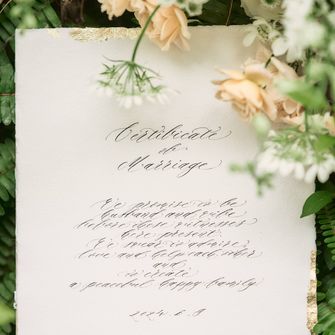 Certificate
de
Marriage
We promise to be
husband and wife
before these witnesses
here present.
We swear to admire,
love and help each other
and
to create
a peaceful happy family.
2024. 6. 9